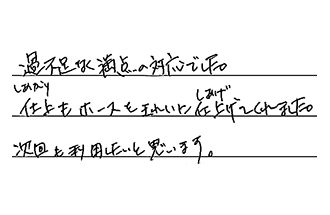 過不足なく満点の対応でした。
しあがり しあげ
仕上もホースをきれいに仕上げてくれました。
次回も利用したいと思います。